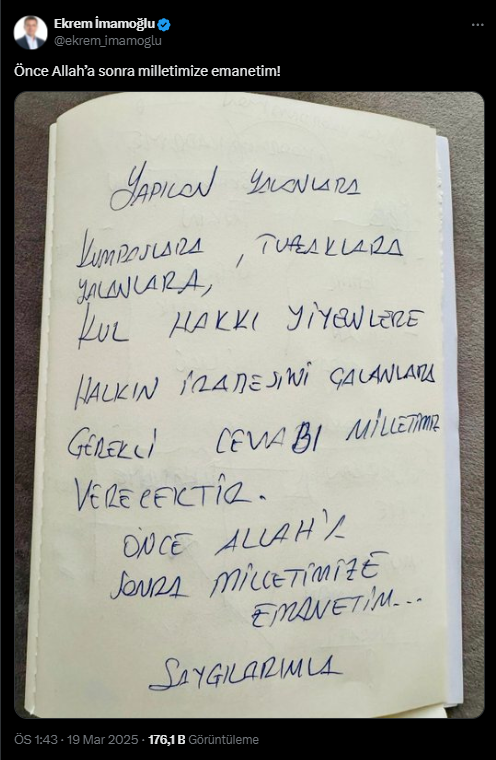 Ekrem İmamoğlu
@ekrem_imamoglu
Önce Allah’a sonra milletimize emanetim!
YAPILAN YALANLARA
KUMPASLARA , TUZAKLARA
YALANLARA,
KUL HAKKI YİYENLERE
HALKIN İRADESİNİ ÇALANLARA
GEREKLİ CEVABI MİLLETİMİZ
VERECEKTİR.
ÖNCE ALLAH'A
SONRA MİLLETİMİZE
EMANETİM...
SAYGILARIMLA
ÖS 1:43 · 19 Mar 2025 · 176,1 B Görüntüleme